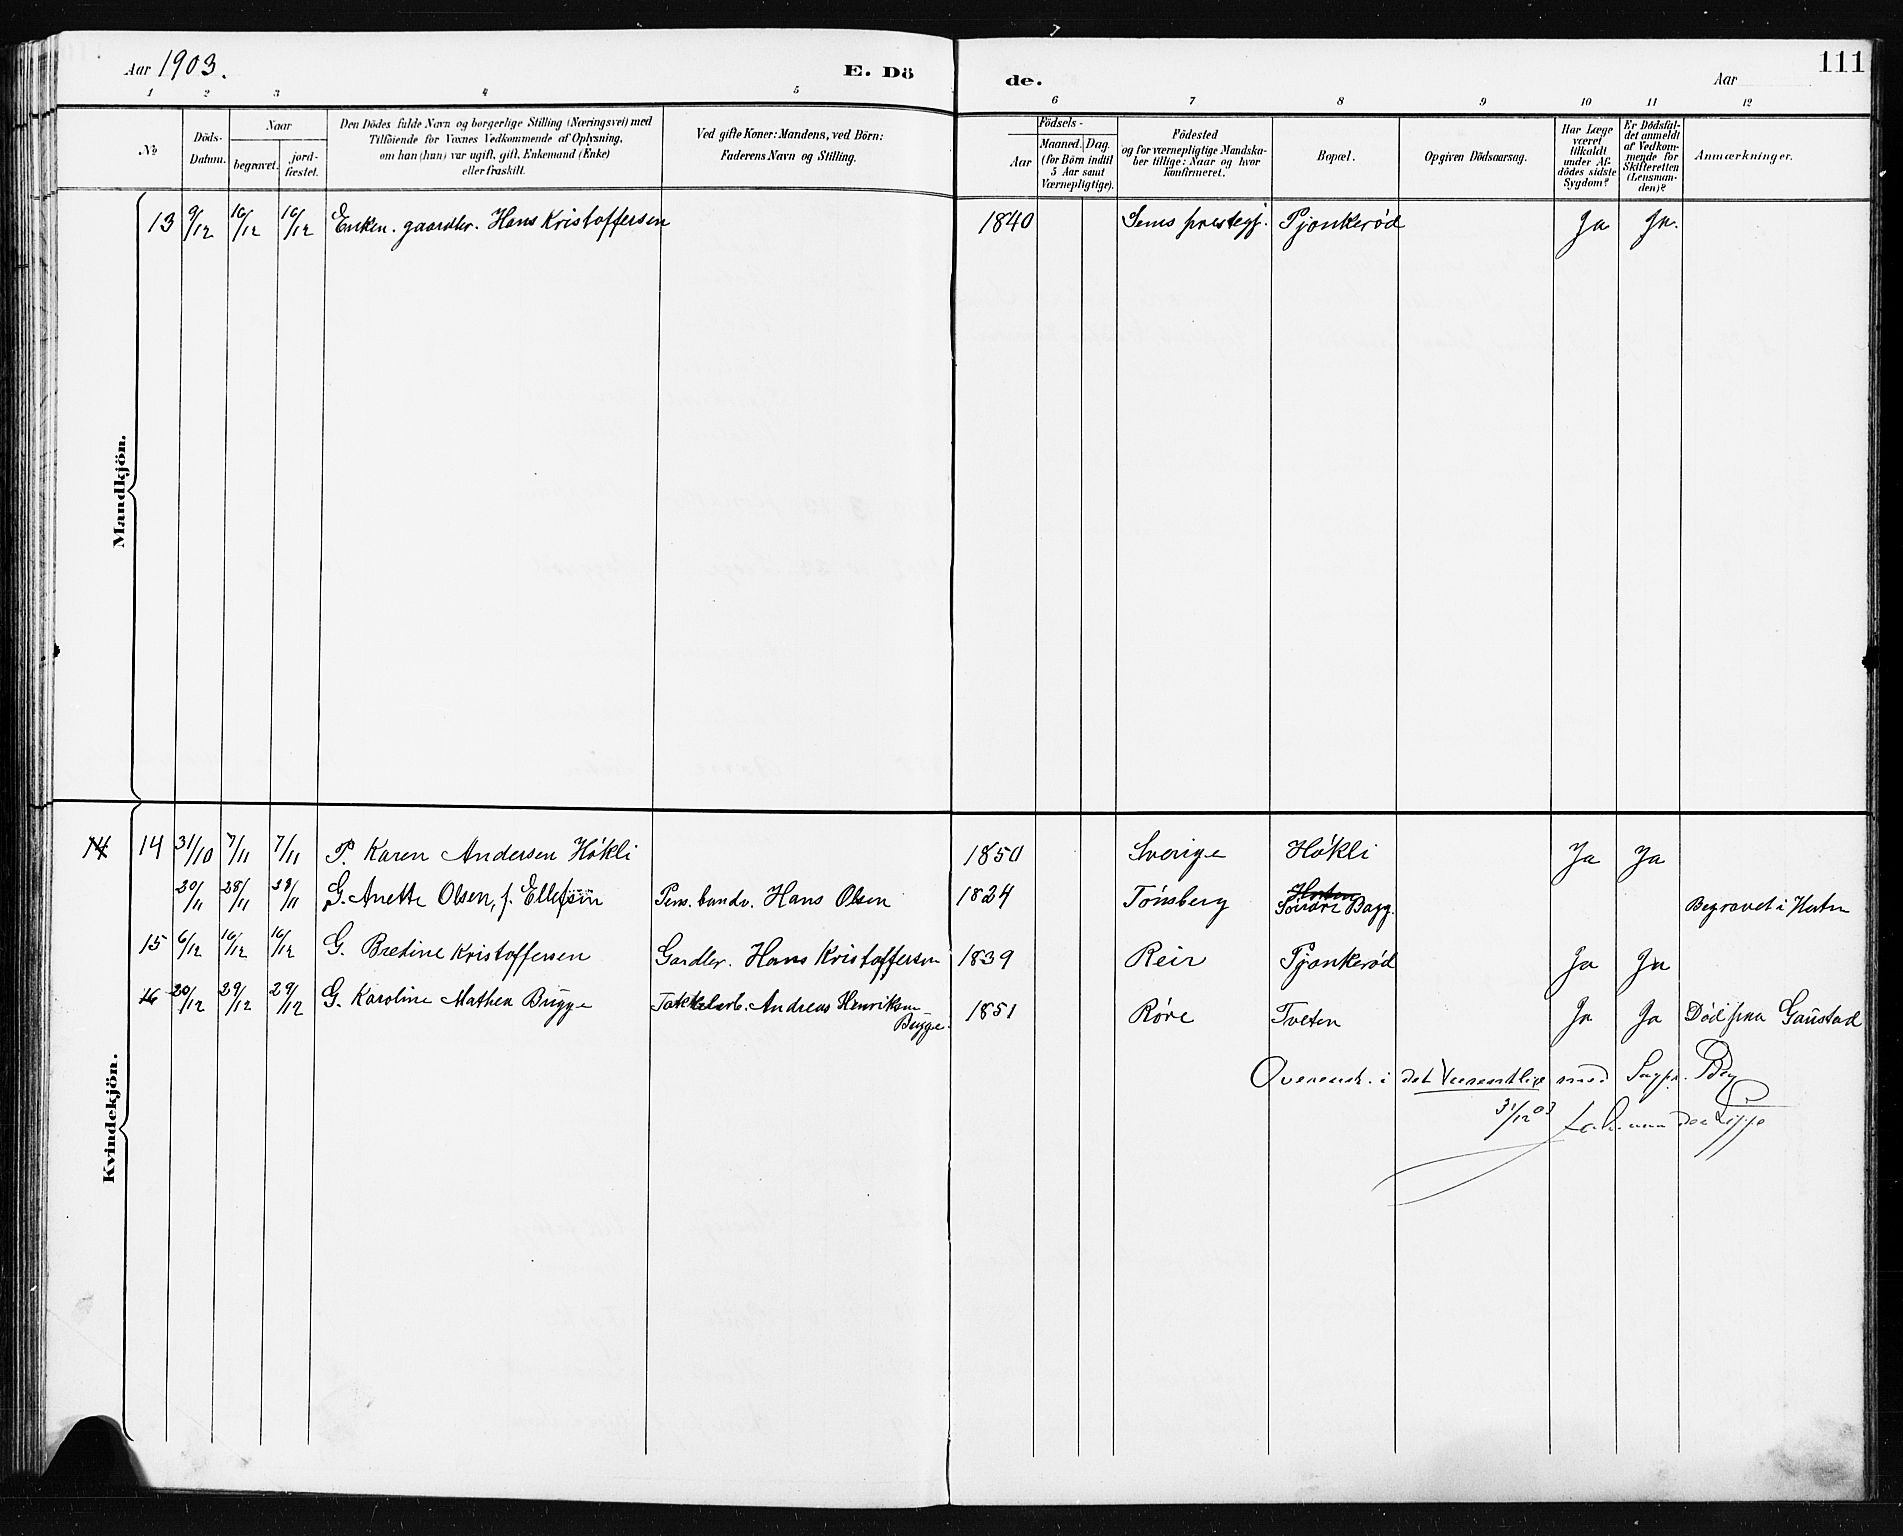 Aar 1903.
E. Dö
de.
Aar
111
1 2 3 4 5 6 7 8 9 10 11 12
№
Döds-
Datum.
Naar
begravet.
jord-
fæstet.
Den Dödes fulde Navn og borgerlige Stilling (Næringsvei) med
Tilföiende for Voxnes Vedkommende af Oplysning,
om han (hun) var ugift, gift, Enkemand (Enke)
eller fraskilt.
Ved gifte Koner: Mandens, ved Börn:
Faderens Navn og Stilling.
Födsels-
Aar
Maaned. Dag.
(for Börn indtil
5 Aar samt
Værnepligtige).
Födested
og for værnepligtige Mandska-
ber tillige: Naar og hvor
konfirmeret.
Bopæl.
Opgiven Dödsaarsag.
Har Læge
været
tilkaldt
under Af-
dödes sidste
Sygdom?
Er Dödsfal-
det anmeldt
af Vedkom-
mende for
Skifteretten
(Lensman-
den)?
Anmærkninger.
Mandkjön.
13 9/12 16/12 16/12 Enkem. gaardbr. Hans Kristoffersen 1840 Sems prestegj. Pjonkerød Ja Ja.
Kvindekjön.
14 14 31/10 7/11 7/11 P. Karen Andersen Høkli 1850 Sverige Høkli Ja Ja
20/11 28/11 28/11 G. Anette Olsen, f. Ellefsen Pens. Hans Olsen 1824 Tønsberg Horten
Søndre Bagg. Begravet i Horten
15 6/12 16/12 16/12 G. Bredine Kristoffersen Gardbr. Hans Kristoffersen 1839 Reir Pjonkerød Ja Ja
16 20/12 29/12 29/12 G. Karoline Mathea Bugge Takkelarb. Andreas Henriksen
Bugge. 1851 Røre Tveten Ja Ja Død paa Gaustad
Overenst. i det Væsentlige med Sogpr. Bog
31/12 03 van der Lippe